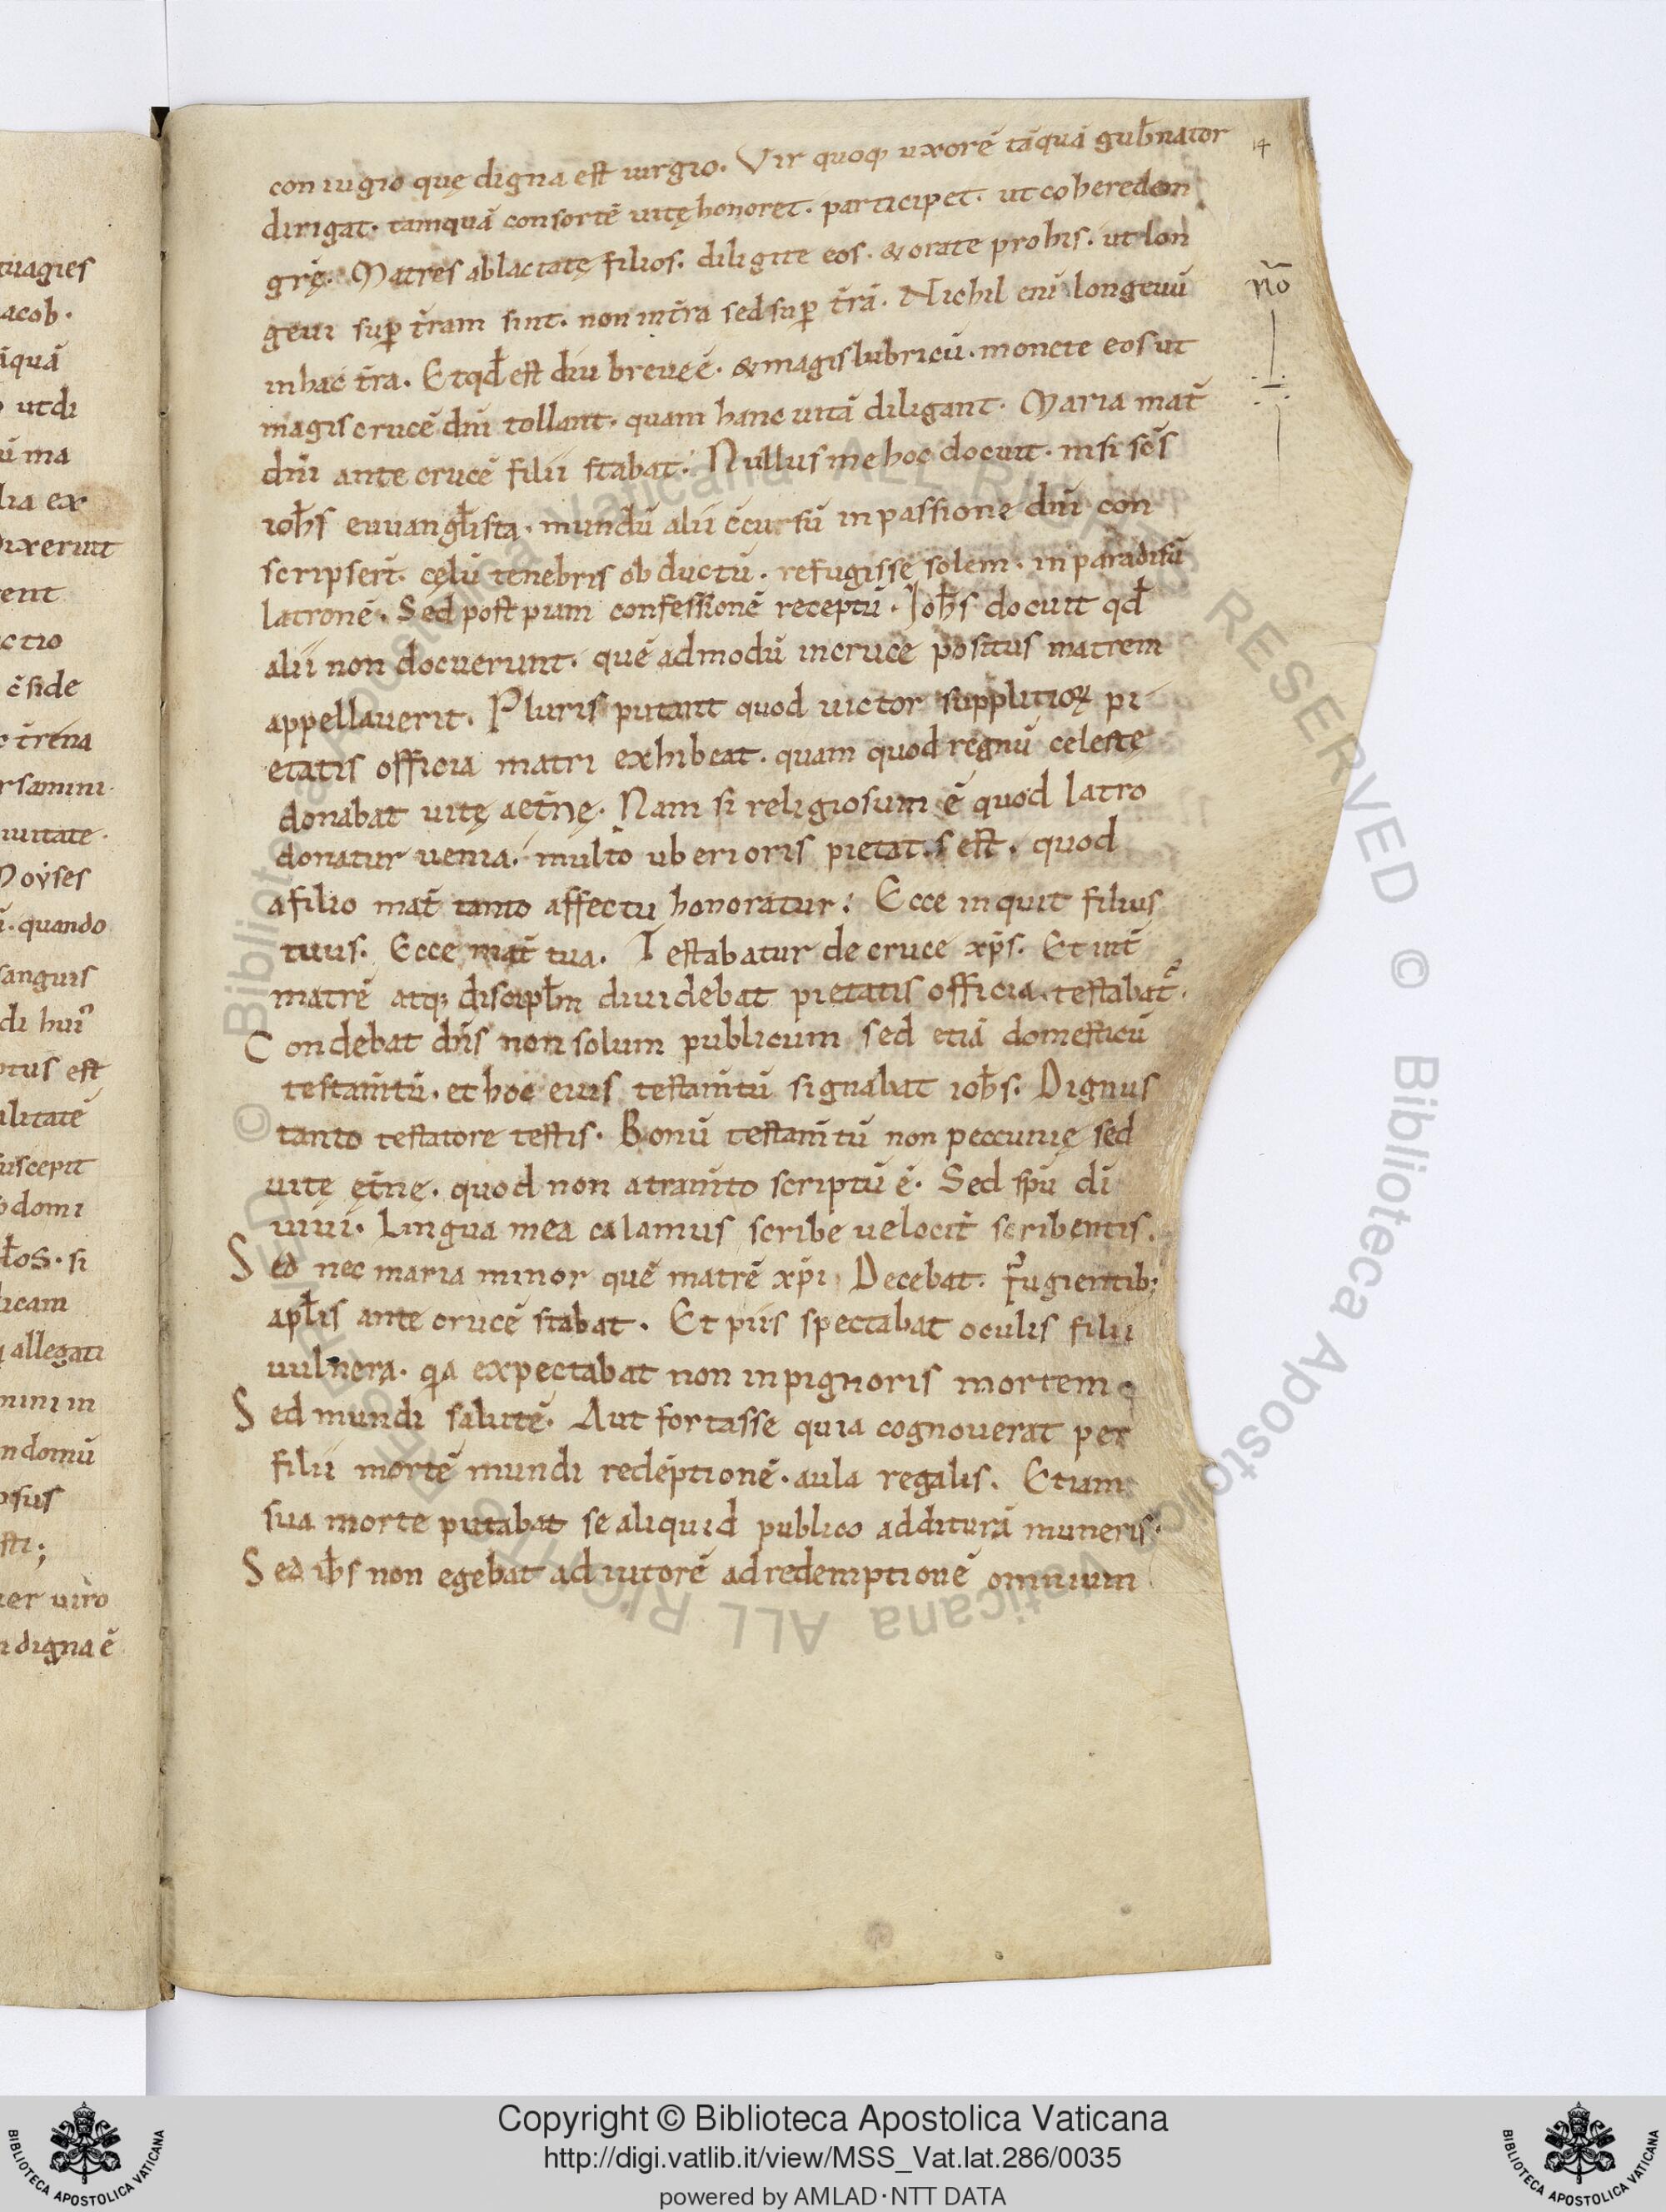 tuagies
acob.
āquā
utdi
ū ma
lia ex
ixerunt
ent
ctio
c̄ side
t̄rena
rsamini.
iuitate.
Moyses
quando
sanguis
di hui᾽
ptus est
ilitatē
suscepit
domi
si
licam
allegati
mini in
ndomū
sus
sti;
er uiro
digna ē
14
con iugio quę digna est iurgio. Vir quoq; uxorē tāquā gub̄nator
dirigat. tamquā consortē uitę honoret. participet. ut coheredem
grę. Matres ablactatę filios. diligite eos. & orate pro his. ut lon
geui sup̄ t̄ram sint. non int̄ra sed sup̄ t̄rā. Nichil enī longeuū
in hac t̄ra. Et qd̄ est diu breue ē. & magis lubricū. monete eos ut
magis crucē dn̄i tollant. quam hanc uitā diligant. Maria mat̄
dn̄i ante crucē filii stabat. Nullus me hoc docuit. nisi sc̄s
ioh̄s euuangl̄ista. mundū alii c̄cursū in passione dn̄i con
scripser̄t. cęlū tenebris obductū. refugisse solem. in paradisū
latronē. Sed post piam confessionē receptū. Ioh̄s docuit qd̄
alii non docuerunt. quē admodū in cruce positus matrem
appellauerit. Pluris putant quod uictor supplitioꝝ pi
etatis officia matri exhibeat. quam quod regnū celeste
donabat uitę aet̄nę. Nam si religiosum ē quod latro
donatur uenia. multo uberioris pietatis est. quod
a filio mat̄ tanto affectu honoratur: Ecce inquit filius
tuus. Ecce mat̄ tua. Testabatur de cruce xp̄s. Et int̄
matrē atq; discipl̄m diuidebat pietatis officia. testabat᾽.
Condebat dn̄s non solum publicum sed etiā domesticū
testam̄tū. et hoc eius testam̄tū signabat ioh̄s. Dignus
tanto testatore testis. Bonū testam̄tū non peccunię sed
uitę ęt̄nę. quod non atram̄to scriptū ē. Sed sp̄u dī
uiui. Lingua mea calamus scribe uelocit̄ scribentis.
Sed nec maria minor quē matrē xp̄i Decebat. fugientib;
apl̄is ante crucē stabat. Et piis spectabat oculis filii
uulnera. qa expectabat non in pignoris mortem
Sed mundi salutē. Aut fortasse quia cognouerat per
filii mortē mundi redēptionē. aula regalis. Etiam
sua morte putabat se aliquid publico additurā muneris.
Sed ih̄s non egebat adiutorē ad redemptionē omnium
nō
© Biblioteca Apostolica Vaticana ALL RIGHTS RESERVED © Biblioteca Apostolica Vaticana ALL RIGHTS RESERVED
BIBLIOTECA APOSTOLICA VATICANA
Copyright © Biblioteca Apostolica Vaticana
http://digi.vatlib.it/view/MSS_Vat.lat.286/0035
powered by AMLAD · NTT DATA
BIBLIOTECA APOSTOLICA VATICANA